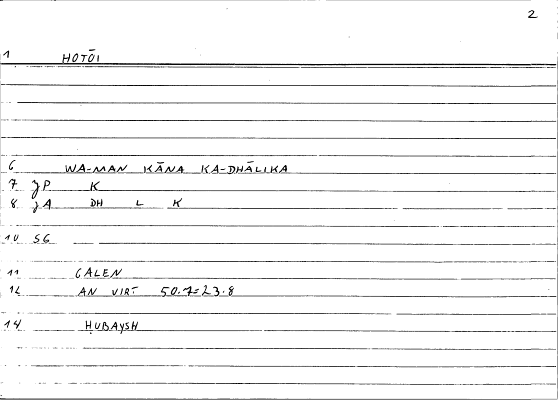 2
1 HOTŌI
6 WA-MAN KĀNA KA-DHĀLIKA
7 JP K
8 JA DH L K
10 SG
11 GALEN
12 AN VIRT 50.7=23.8
14 ḤUBAYSH